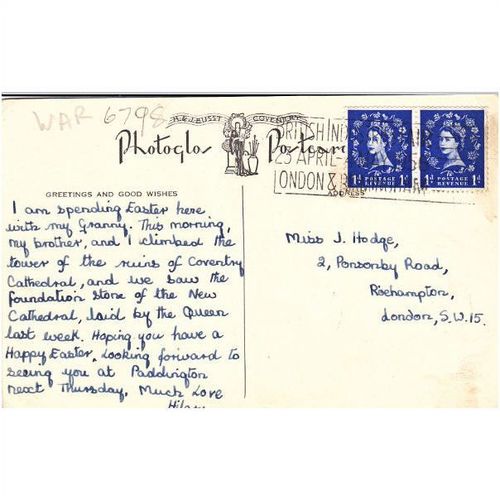 WAR 6798
H & J. BUSST COVENTRY
Photoglos Postcard
BRITISH IND
23 APRIL-
LONDON & BIRMINGHAM
1d POSTAGE REVENUE 1d
1d POSTAGE REVENUE 1d
ADDRESS
GREETINGS AND GOOD WISHES
I am spending Easter here
with my Granny. This morning,
my brother, and I climbed the
tower of the ruins of Coventry
Cathedral, and we saw the
foundation stone of the New
Cathedral, laid by the Queen
last week. Hoping you have a
Happy Easter, Looking forward to
seeing you at Paddington
next Thursday, Much Love
Hilary
Miss J. Hodge,
2, Ponsonby Road,
Roehampton,
London, S.W.15.